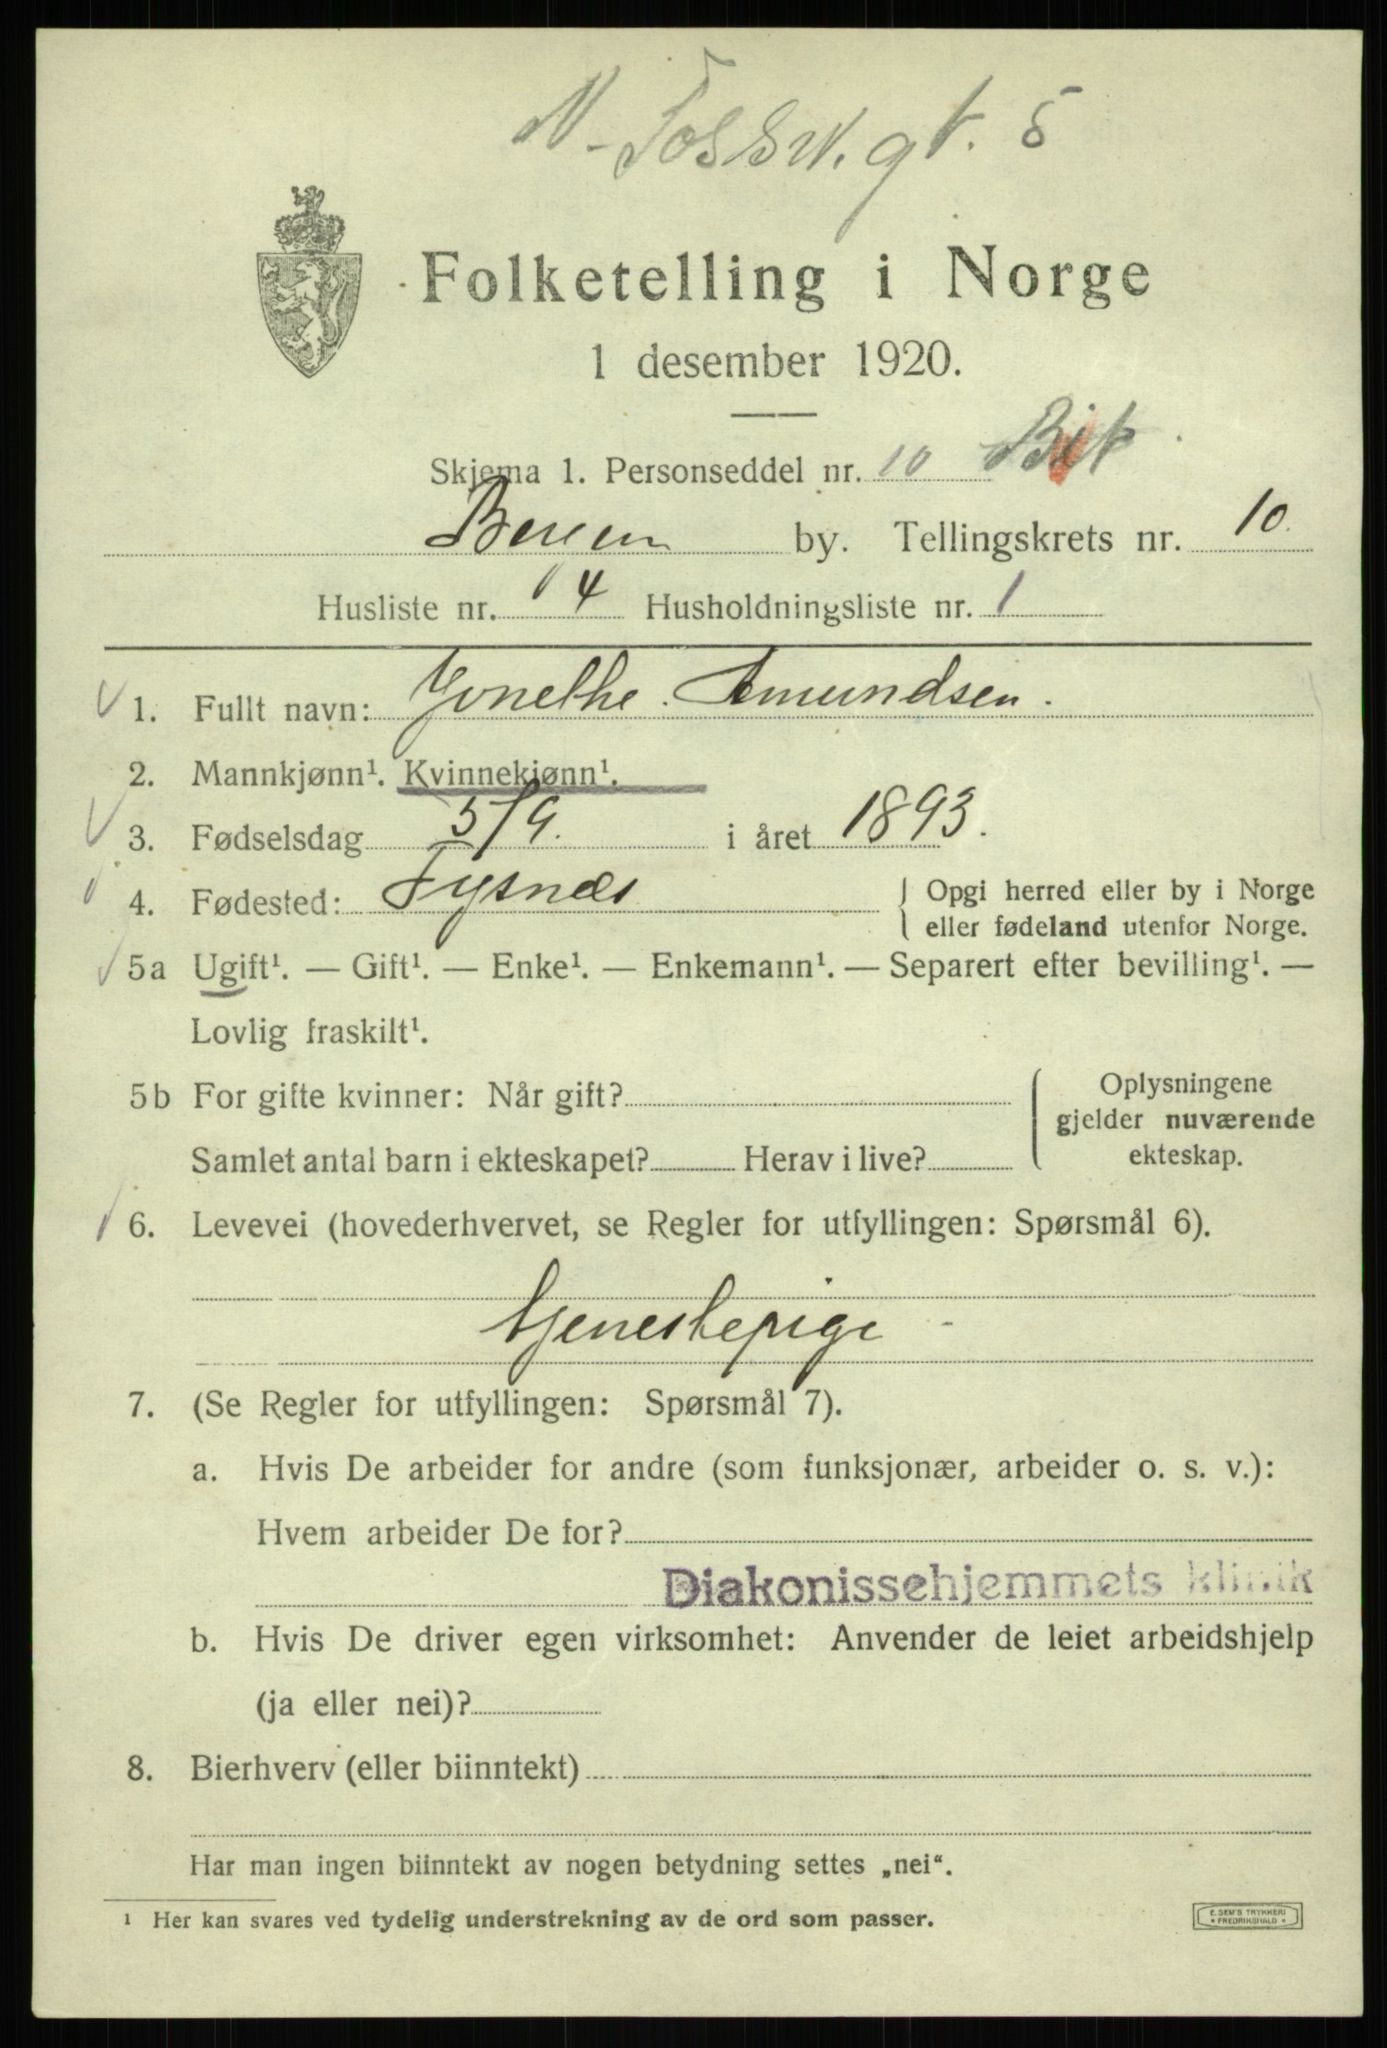 N. Fossw. gt. 5
Folketelling i Norge
1 desember 1920.
Skjema 1. Personseddel nr. 10
Bergen by. Tellingskrets nr. 10.
Husliste nr. 4 Husholdningsliste nr. 1
1. Fullt navn: Jonethe Amundsen.
2. Mannkjønn¹. Kvinnekjønn¹.
3. Fødselsdag 5/9. i året 1893.
4. Fødested: Tysnæs { Opgi herred eller by i Norge
eller fødeland utenfor Norge.
5a Ugift¹. — Gift¹. — Enke¹. — Enkemann¹. — Separert efter bevilling¹. —
Lovlig fraskilt¹.
5b For gifte kvinner: Når gift? { Oplysningene
gjelder nuværende
Samlet antal barn i ekteskapet? Herav i live? ekteskap.
6. Levevei (hovederhvervet, se Regler for utfyllingen: Spørsmål 6).
tjenestepige
7. (Se Regler for utfyllingen: Spørsmål 7).
a. Hvis De arbeider for andre (som funksjonær, arbeider o. s. v.):
Hvem arbeider De for?
Diakonissehjemmets klinik
b. Hvis De driver egen virksomhet: Anvender de leiet arbeidshjelp
(ja eller nei)?
8. Bierhverv (eller biinntekt)
Har man ingen biinntekt av nogen betydning settes „nei“.
¹ Her kan svares ved tydelig understrekning av de ord som passer.
E. SEM'S TRYKKERI
* FREDRIKSHALD *